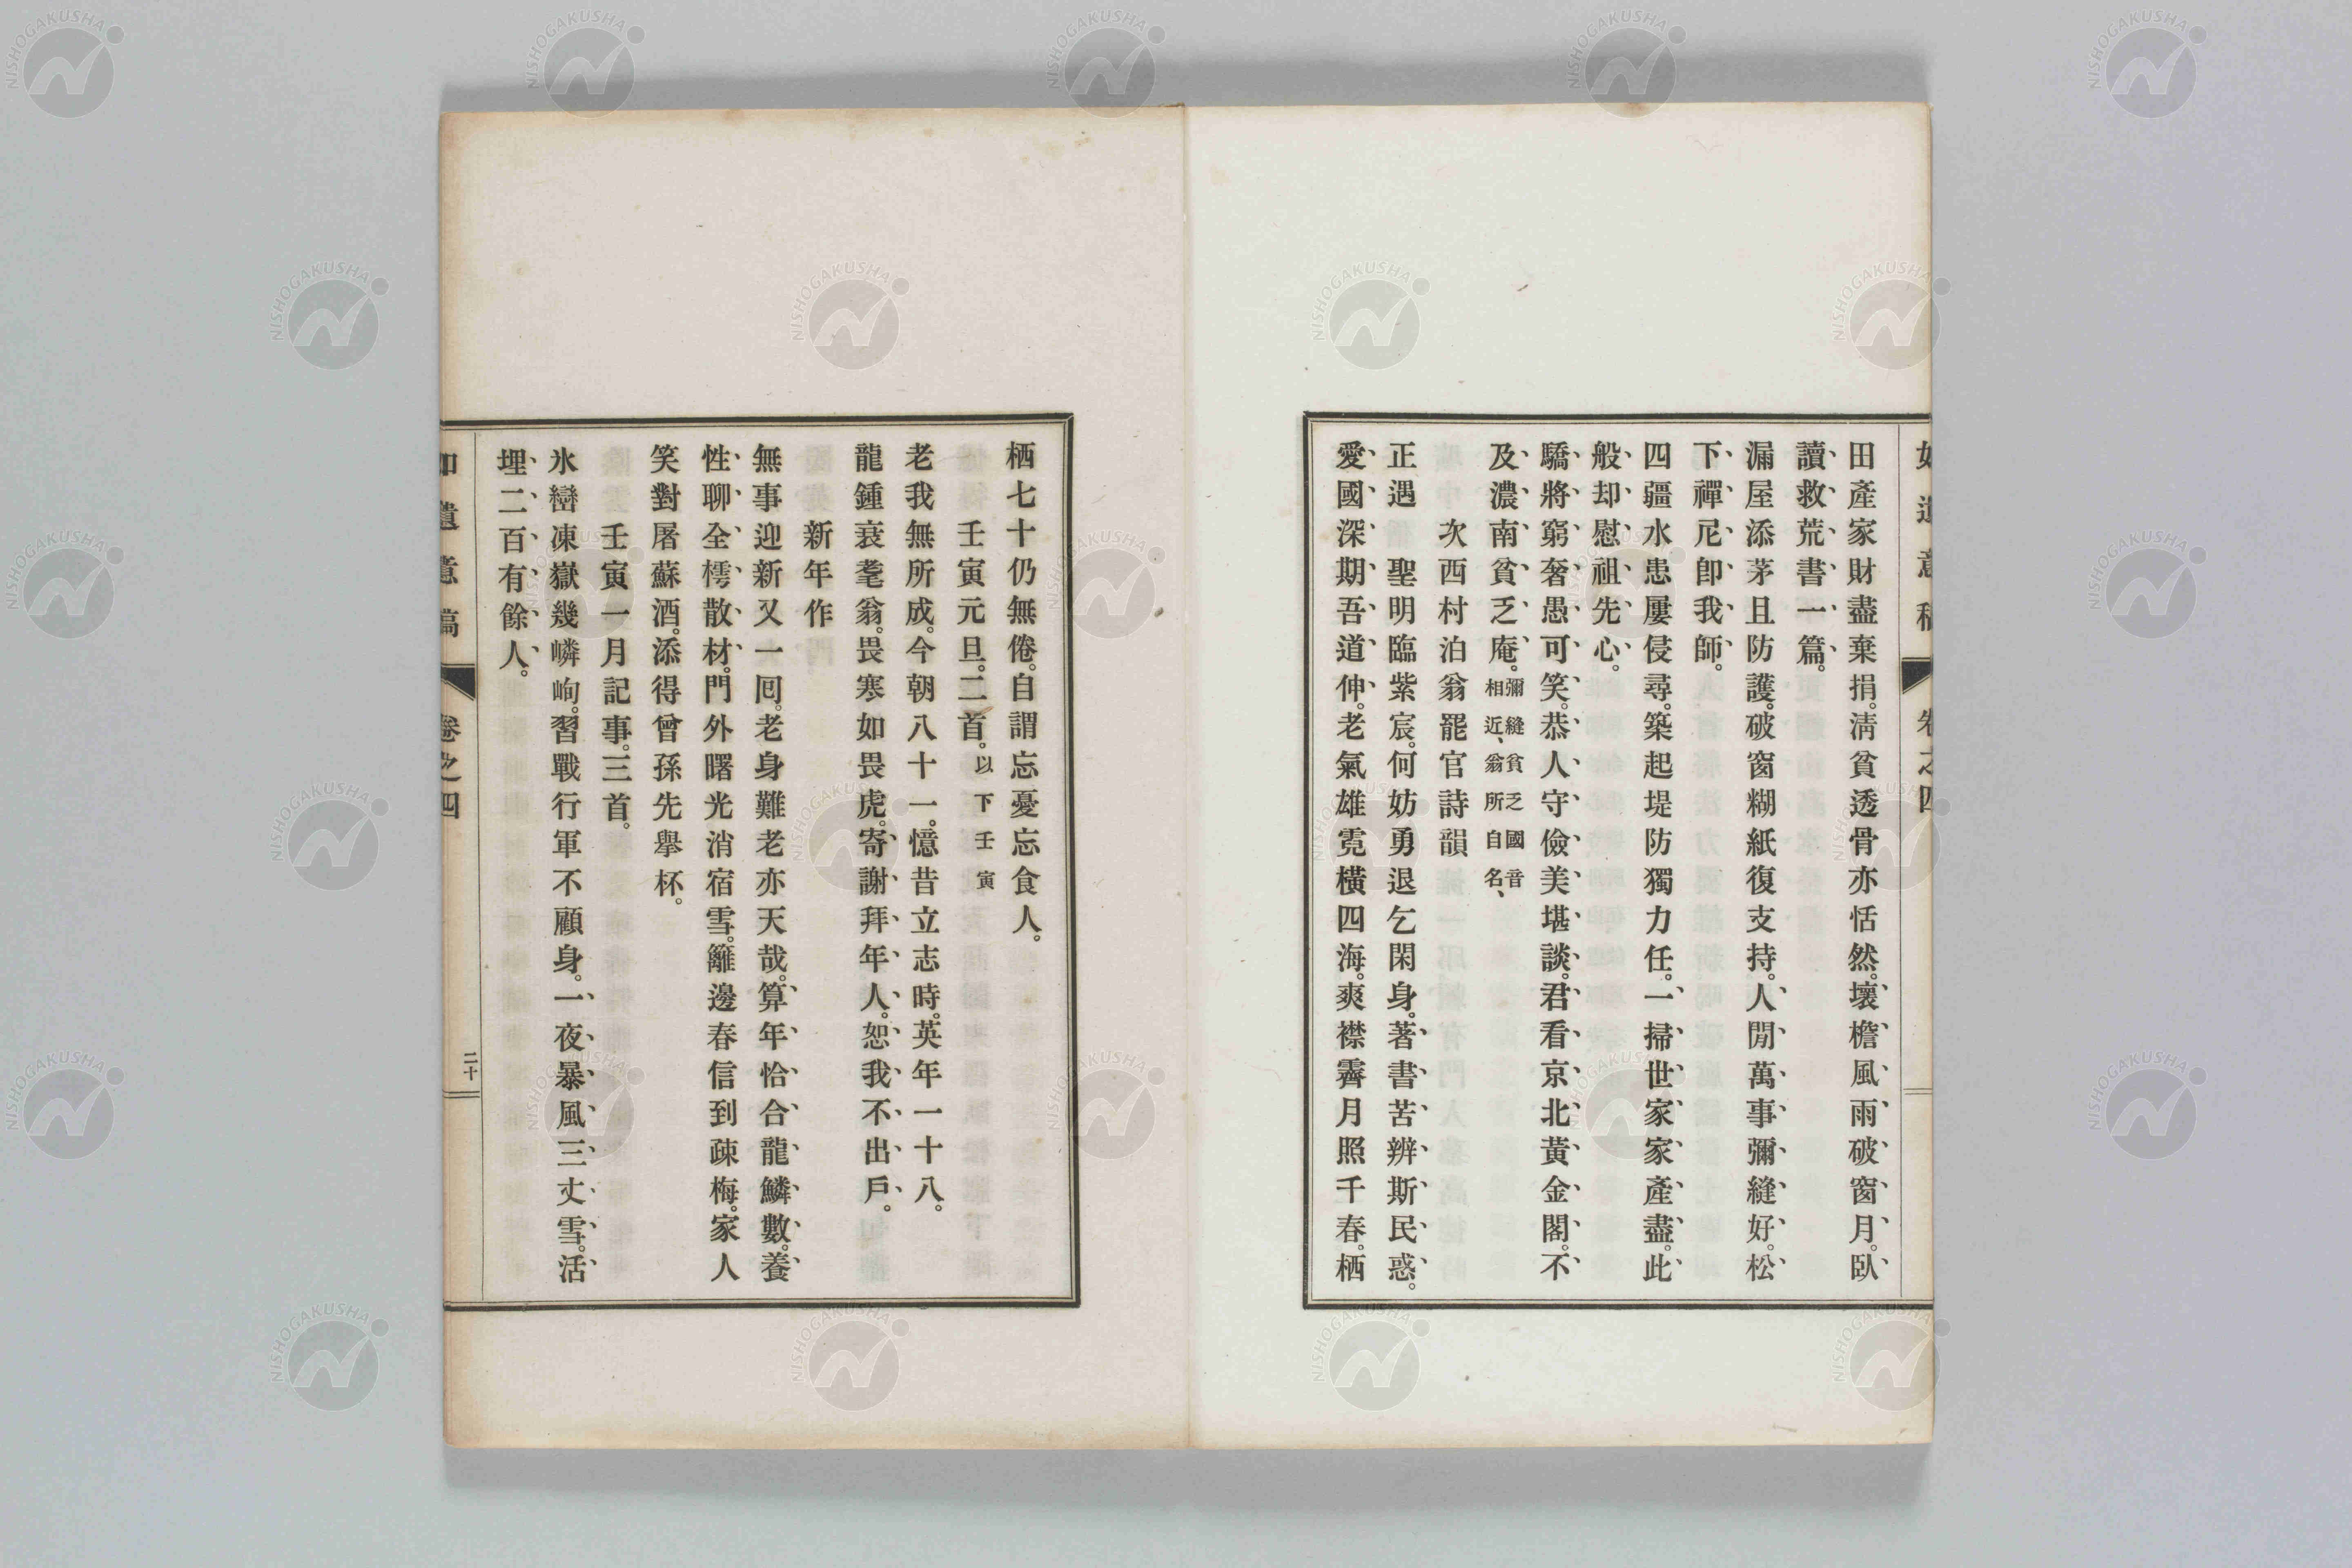 田產家財盡棄捐。淸貧透骨亦恬然。壞檐風雨破窗月。臥
讀救荒書一篇。
漏屋添茅且防護。破窗糊紙復支持。人閒萬事彌縫好。松
下禪尼卽我師。
四疆水患屢侵尋。築起堤防獨力任。一掃世家家產盡。此
般却慰祖先心。
驕將窮奢愚可笑。恭人守儉美堪談。君看京北黃金閣。不
及濃南貧乏庵。彌縫貧乏國音
相近、翁所自名、
次西村泊翁罷官詩韻
正遇 聖明臨紫宸。何妨勇退乞閑身。著書苦辨斯民惑。
愛國深期吾道伸。老氣雄霓橫四海。爽襟霽月照千春。栖
栖七十仍無倦。自謂忘憂忘食人。
壬寅元旦。二首。以下壬寅
老我無所成。今朝八十一。憶昔立志時。英年一十八。
龍鍾衰耄翁。畏寒如畏虎。寄謝拜年人。恕我不出戶。
新年作
無事迎新又一囘。老身難老亦天哉。算年恰合龍鱗數。養
性聊全樗散材。門外曙光消宿雪。籬邊春信到疎梅。家人
笑對屠蘇酒。添得曾孫先擧杯。
壬寅一月記事。三首。
氷巒凍嶽幾嶙峋。習戰行軍不顧身。一夜暴風三丈雪。活
埋二百有餘人。
遺意稿
卷之四
二十
NISHOGAKUSHA